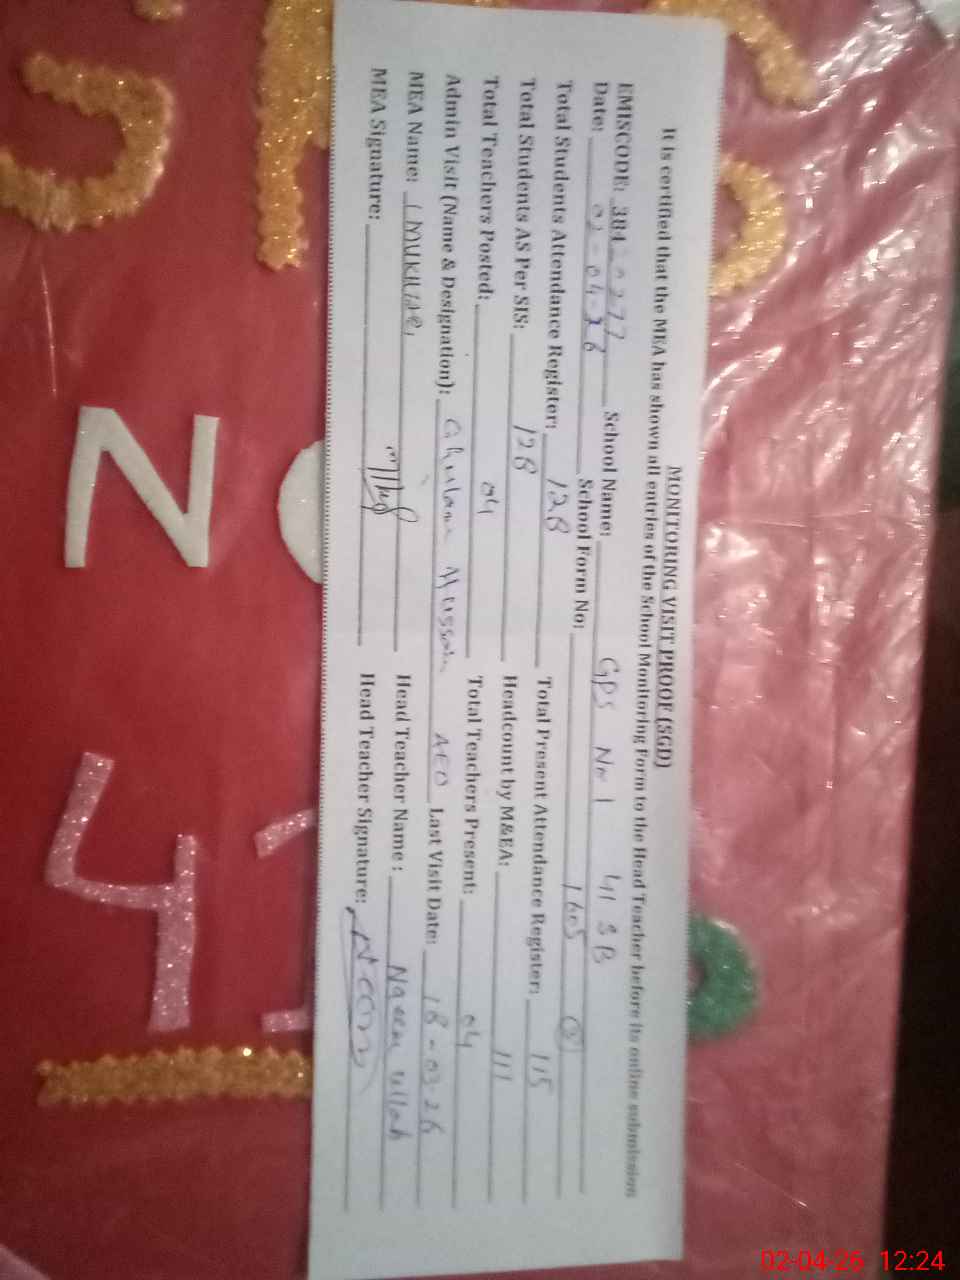 MONITORING VISIT PROOF (SGD)
It is certified that the MEA has shown all entries of the School Monitoring Form to the Head Teacher before its online submission
EMISCODE: 38420277 School Name: GPS No 1 41 SB
Date: 02-04-26 School Form No: 1605
Total Students Attendance Register: 128 Total Present Attendance Register: 115
Total Students AS Per SIS: 128 Headcount by M&EA: 111
Total Teachers Posted: 04 Total Teachers Present: 04
Admin Visit (Name & Designation): Ghulam AEO Last Visit Date: 18-03-26
MEA Name: Head Teacher Name : Naeem Ullah
MEA Signature: Head Teacher Signature:
N
41
02-04-26 12:24